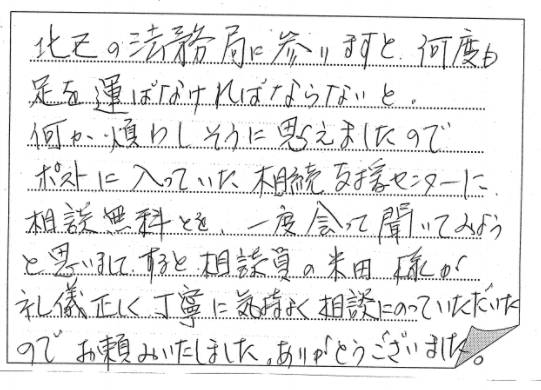 北区の法務局に参りますと、何度も
足を運ばなければならないと、
何か煩わしそうに思えましたので
ポストに入っていた相続支援センターに、
相談無料とを、一度会って聞いてみよう
と思いまして、すると相談員の米田様が
礼儀正しく丁寧に気持よく相談にのっていただいた
のでお頼みいたしました。ありがとうございました。